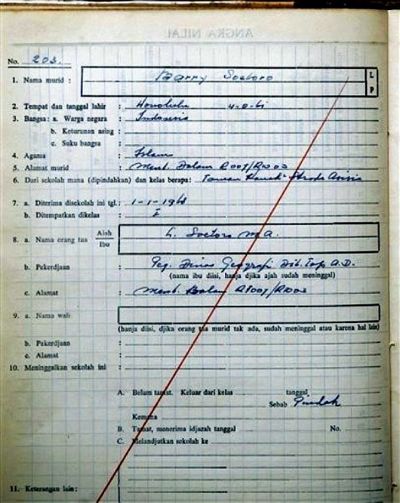 ANGKA NILAI
No. 203.
1. Nama murid : Barry Soetoro L P
2. Tempat dan tanggal lahir : Honolulu 4-8-61
3. Bangsa: a. Warga negara : Indonesia
b. Keturunan asing :
c. Suku bangsa :
4. Agama : Islam
5. Alamat murid : Ment. Dalam R007/R003
6. Dari sekolah mana (dipindahkan) dan kelas berapa: Taman Kanak2 Strada Asisi
7. a. Diterima disekolah ini tgl.: 1-1-1968
b. Ditempatkan dikelas : I
8. a. Nama orang tua Ajah Ibu : L. Soetoro M.A.
b. Pekerdjaan : Peg. Dinas Geografi Dit. Top. A.D.
(nama ibu diisi, hanja djika ajah sudah meninggal)
c. Alamat : Ment. Dalam R007/R003
9. a. Nama wali :
(hanja diisi, djika orang tua murid tak ada, sudah meninggal atau karena hal lain)
b. Pekerdjaan :
c. Alamat :
10. Meninggalkan sekolah ini :
A. Belum tamat. Keluar dari kelas tanggal
Sebab Pindah
Kemana
B. Tamat, menerima idjazah tanggal No.
C. Melandjutkan sekolah ke
11. Keterangan lain :